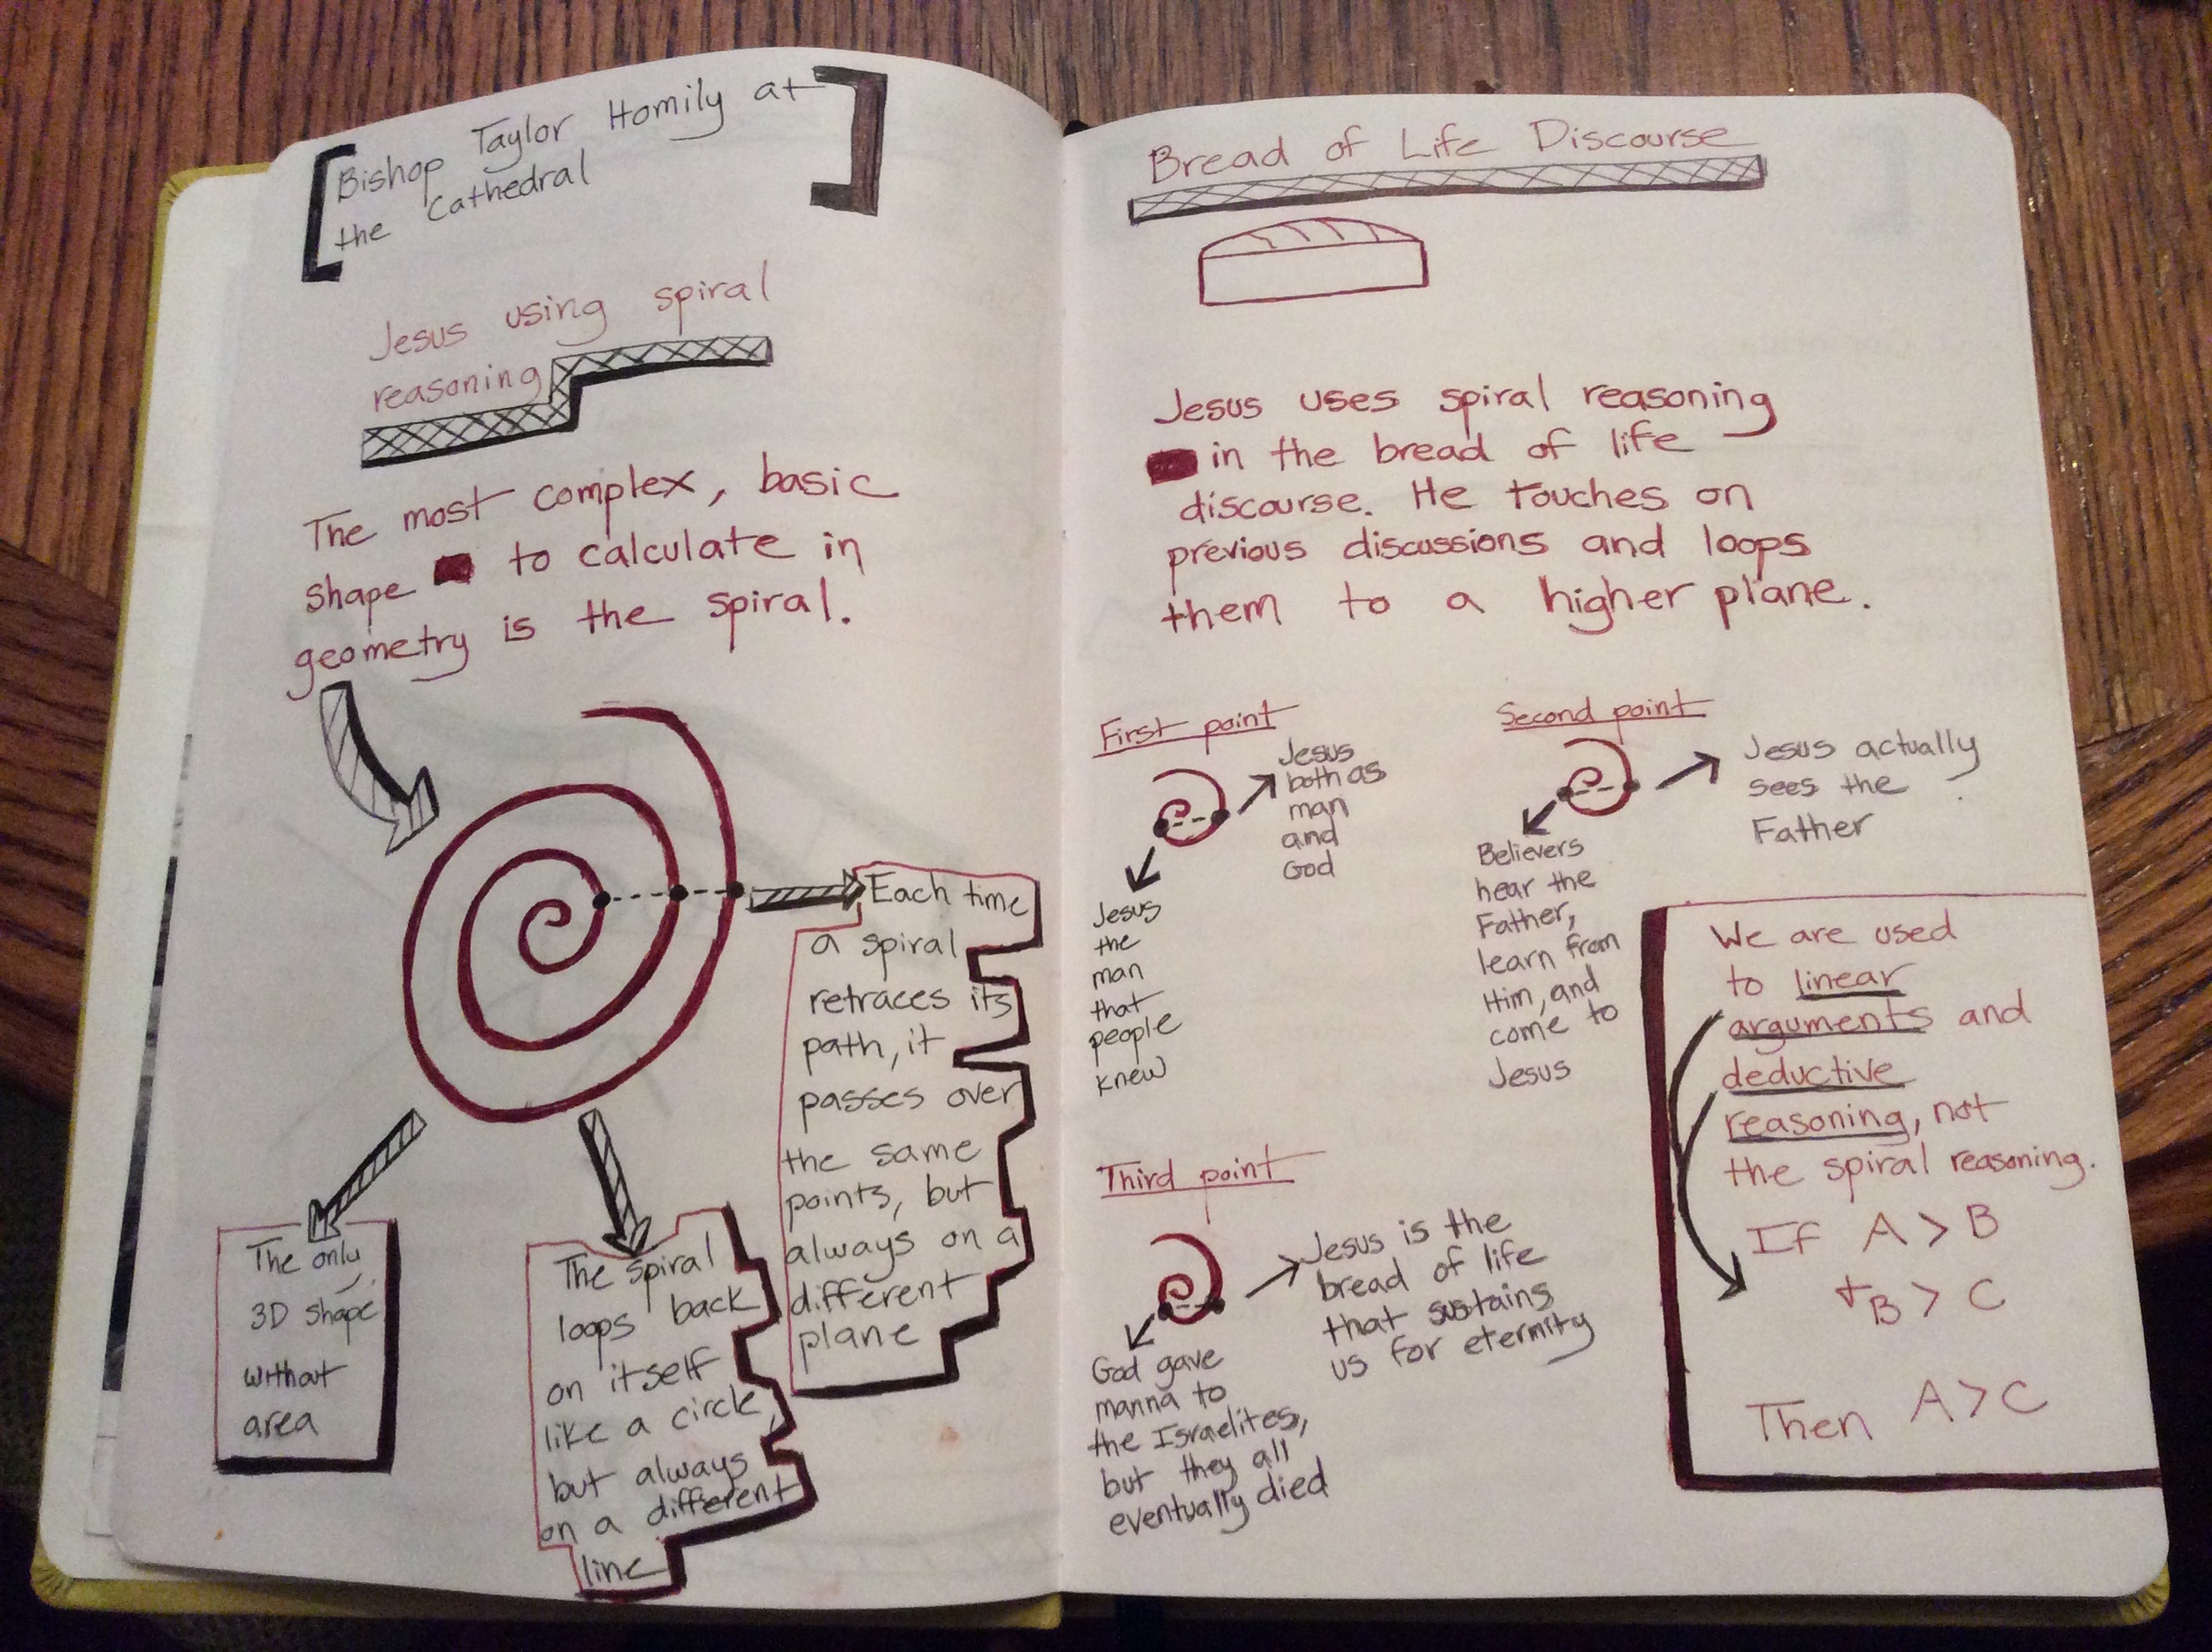 Bishop Taylor Homily at
the Cathedral
Jesus using spiral
reasoning
The most complex, basic
shape to calculate in
geometry is the spiral.
Each time
a spiral
retraces its
path, it
passes over
the same
points, but
always on a
different
plane
The only
3D shape
without
area
The spiral
loops back
on itself
like a circle,
but always
on a different
line
Bread of Life Discourse
Jesus uses spiral reasoning
in the bread of life
discourse. He touches on
previous discussions and loops
them to a higher plane.
First point
Jesus
both as
man
and
God
Jesus
the
man
that
people
knew
Second point
Jesus actually
sees the
Father
Believers
hear the
Father,
learn from
Him, and
come to
Jesus
Third point
Jesus is the
bread of life
that sustains
us for eternity
God gave
manna to
the Israelites,
but they all
eventually died
We are used
to linear
arguments and
deductive
reasoning, not
the spiral reasoning.
If A > B
+ B > C
Then A > C